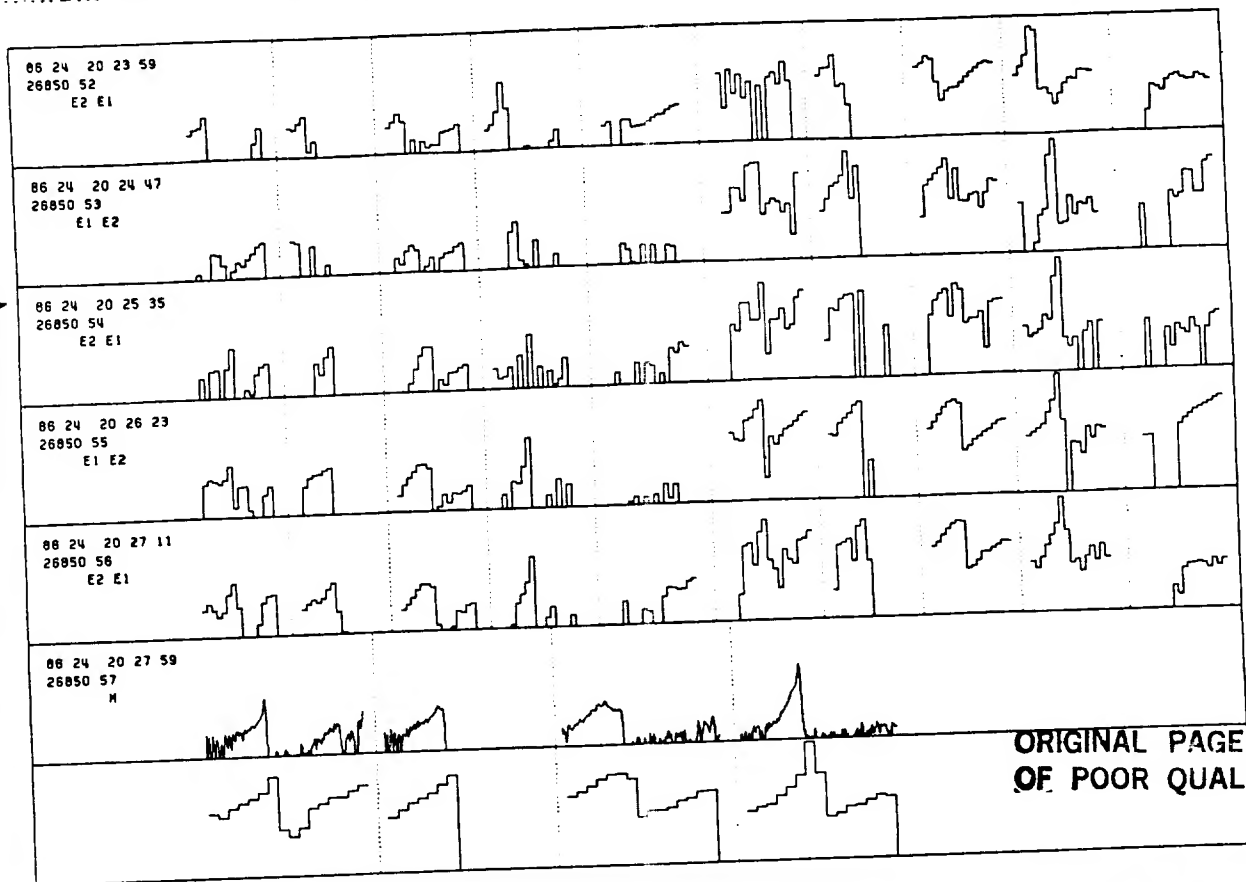 86 24 20 23 59
26850 52
E2 E1
86 24 20 24 47
26850 53
E1 E2
86 24 20 25 35
26850 54
E2 E1
86 24 20 26 23
26850 55
E1 E2
86 24 20 27 11
26850 56
E2 E1
86 24 20 27 59
26850 57
M
ORIGINAL PAGE
OF POOR QUAL